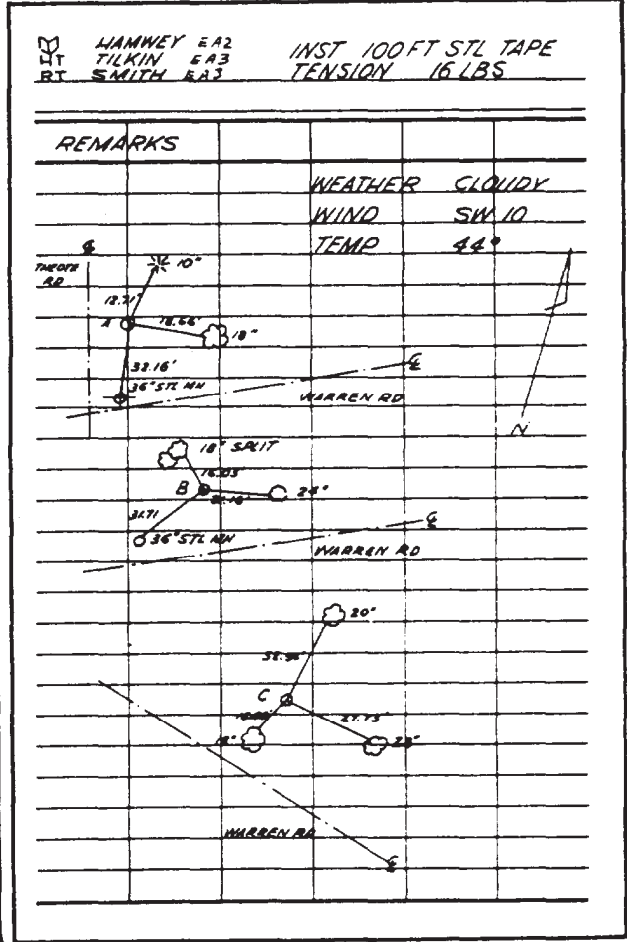 HAMWEY EA2
HT TILKIN EA3
RT SMITH EA3
INST 100 FT STL TAPE
TENSION 16 LBS
REMARKS
WEATHER CLOUDY
WIND SW 10
TEMP 44°
℄
RD
10"
12.71'
A
18.66'
18"
32.16'
36" STL MH
℄
WARREN RD
N
18" SPLIT
16.03'
B
24"
31.71
36" STL MH
℄
WARREN RD
20"
C
27.73'
WARREN RD
℄